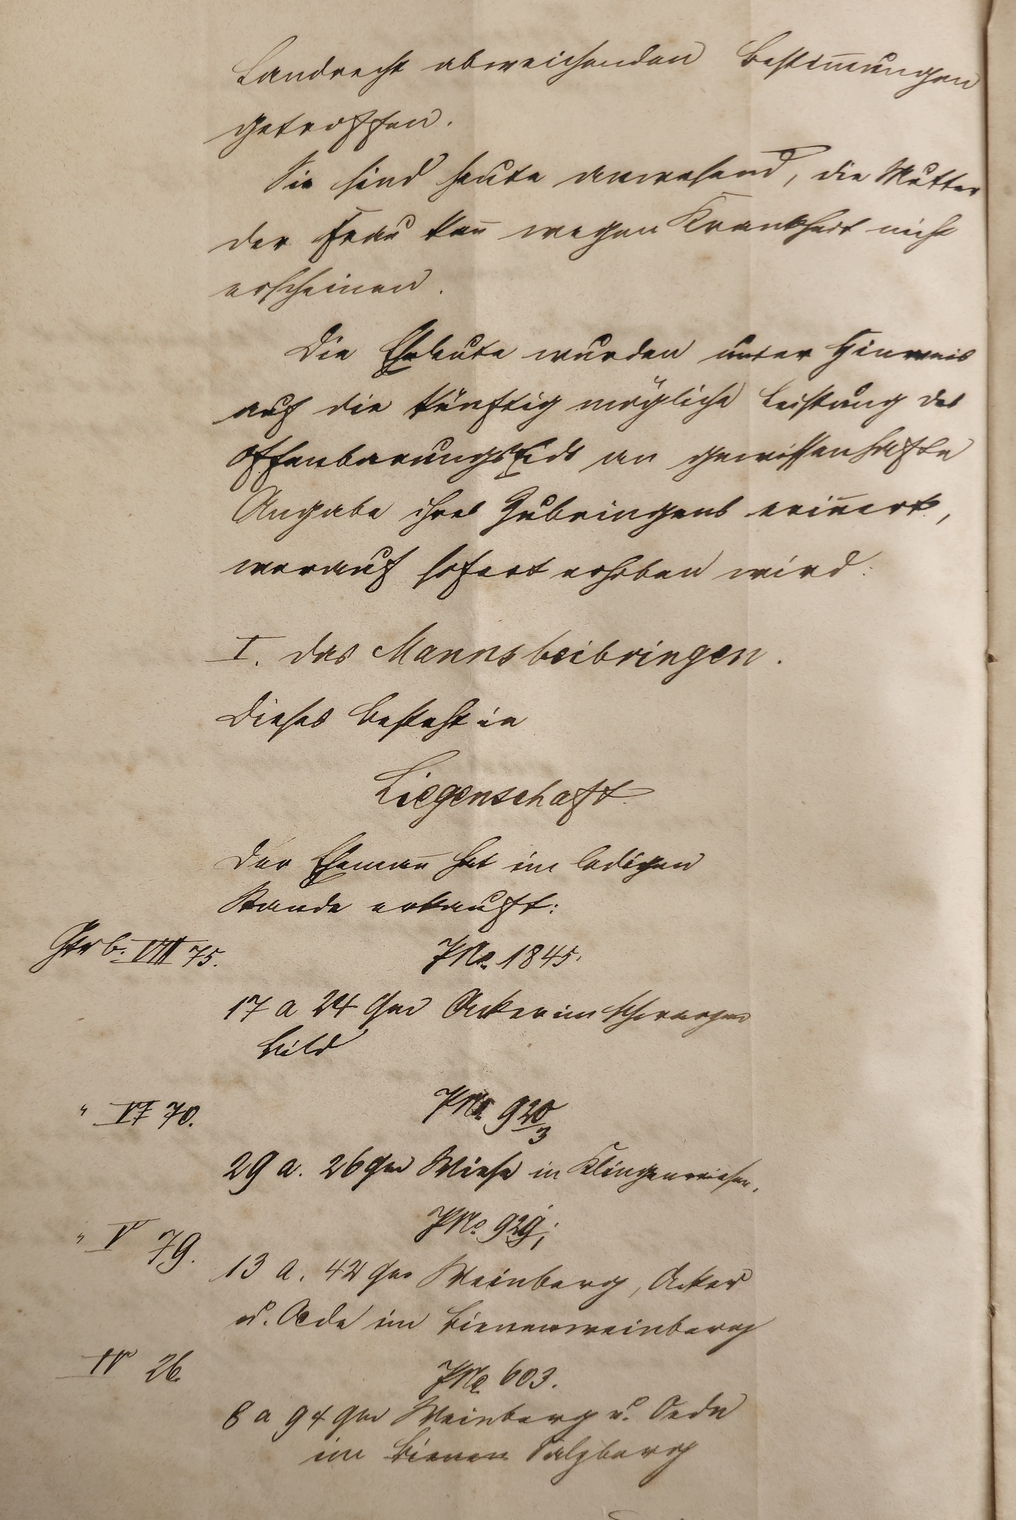 Landrecht abweichenden Bestim̅ungen
getroffen.
Sie sind heute anwesend, die Mutter
der Frau kan̅ wegen Krankheit nicht
erscheinen.
Die Eheleute wurden unter Hinweis
auf die künftig mögliche Leistung des
Offenbarungs Eids an gewissenhafte
Angabe ihres Zubringens erin̅ert,
worauf sofort erhoben wird:
I. das Mannsbeibringen.
Dieses besteht in
Liegenschaft.
Der Eheman̅ hat im ledigen
Stande erkauft:
Gtrb. VIII 75. PNo. 1845.
17 a 24 qm Acker im schwarzen
Bild
" VI 70. PNo. 920/3
29 a. 26 qm Wiese in Klingenwiesen.
" V 79. PNo. 929/1
13 a. 42 qm Weinberg, Acker
u. Oede im Bienenweinberg
IV 26. PNo 603.
8 a 94 qm Weinberg u. Oede
im Salzberg